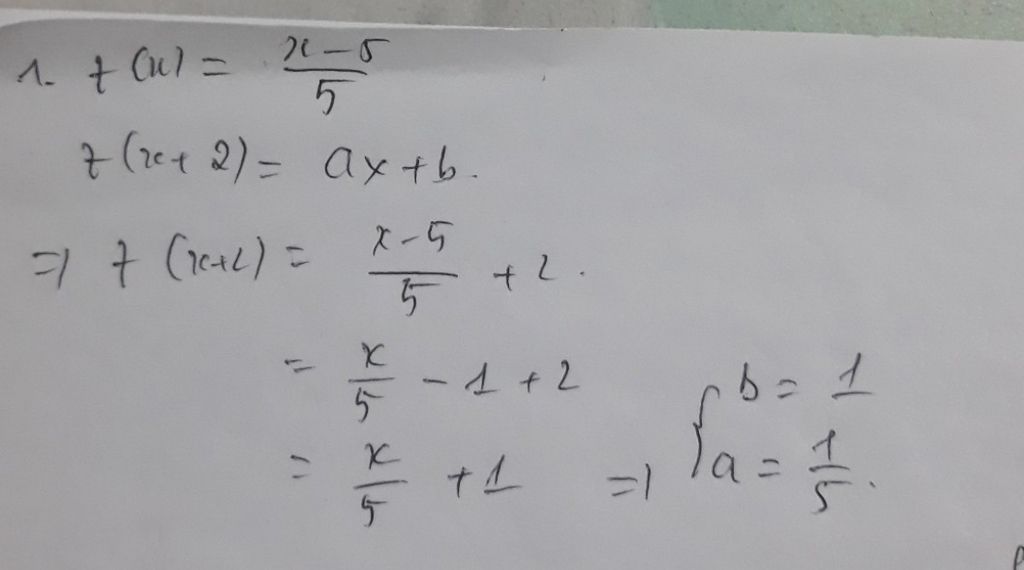 1. f(x) = (x-5)/5
f(x+2) = ax+b.
=> f(x+2) = (x-5)/5 + 2.
= x/5 - 1 + 2
= x/5 + 1 => { b = 1
a = 1/5.